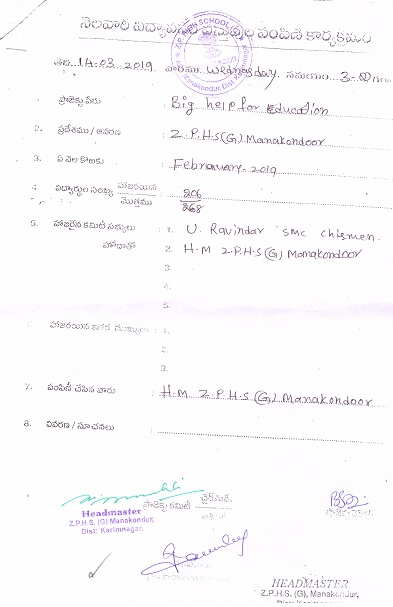 నెలవారి విద్యా వస్తువుల పంపిణీ కార్యక్రమం
Z.P. HIGH SCHOOL
Manakondur, Dist. Karimnagar
తేది 14-03-2019 వారము Wednasday సమయం 3-00
1. ప్రాజెక్టు పేరు : Big help for Education
2. ప్రదేశము / ఆవరణ : Z.P.H.S(G) Manakondoor
3. ఏ నెల కొరకు : Februwary-2019
4. విద్యార్థుల సంఖ్య హాజరయిన 206
మొత్తము 268
5. హాజరైన కమిటి సభ్యులు : 1. U. Ravindar SMC Chismen.
హోదాతో 2. H.M Z.P.H.S(G) Manakondoor
3.
4.
5.
హాజరయిన ఇతర ముఖ్యులు : 1.
2.
3.
7. పంపిణీ చేసిన వారు : H.M Z.P.H.S (G) Manakondoor
8. వివరణ / సూచనలు :
ప్రాజెక్ట్ కమిటీ చైర్మన్.
Headmaster
Z.P.H.S. (G) Manakondur,
Dist: Karimnagar.
HEADMASTER
Z.P.H.S. (G), Manakondur,
Dist: Karimnagar